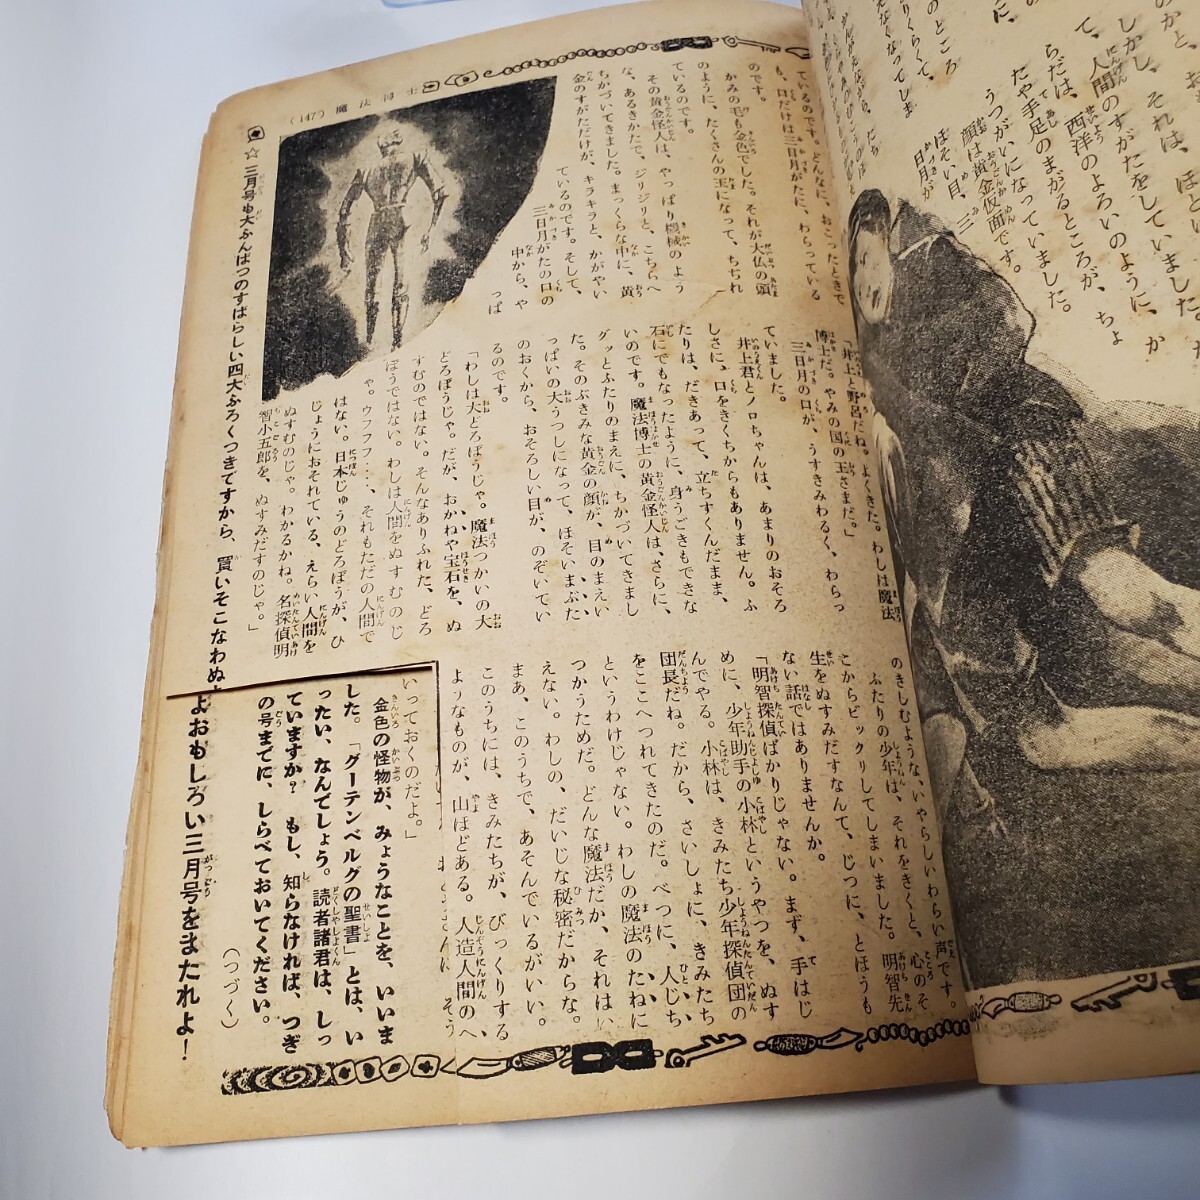 のかと、お
しかし、それは、ほとけ
て、人間のすがたをしていました。か
らだは、西洋のよろいのように、か
たや手足のまがるところが、ちょ
うつがいになっていました。
顔は黄金仮面です。
ほそい目、三
日月が
のところ
りくらくて、
えなくなってしま
(147) 魔法博士
ているのです。どんなに、おこったときで
も、口だけは三日月がたに、わらっている
のです。
かみの毛も金色でした。それが大仏の頭
のように、たくさんの玉になって、ちぢれ
ているのです。
その黄金怪人は、やっぱり機械のよう
な、あるきかたで、ジリジリと、こちらへ
ちかづいてきました。まっくらな中に、黄
金のすがただけが、キラキラと、かがやい
ているのです。そして、
三日月がたの口の
中から、や
っぱ
「井上と野呂だね。よくきた。わしは魔法
博士だ。やみの国の王さまだ。」
三日月の口が、うすきみわるく、わらっ
ていました。
井上君とノロちゃんは、あまりのおそろ
しさに、口をきくちからもありません。ふ
たりは、だきあって、立ちすくんだまま、
石にでもなったように、身うごきもできな
いのです。魔法博士の黄金怪人は、さらに、
グッとふたりのまえに、ちかづいてきまし
た。そのぶきみな黄金の顔が、目のまえい
っぱいの大うつしになって、ほそいまぶた
のおくから、おそろしい目が、のぞいてい
るのです。
「わしは大どろぼうじゃ。魔法つかいの大
どろぼうじゃ。だが、おかねや宝石を、ぬ
すむのではない。そんなありふれた、どろ
ぼうではない。わしは人間をぬすむのじ
ゃ。ウフフフ‥‥、それもただの人間で
はない。日本じゅうのどろぼうが、ひ
じょうにおそれている、えらい人間を
ぬすむのじゃ。わかるかね。名探偵明
智小五郎を、ぬすみだすのじゃ。」
のきしむような、いやらしいわらい声です。
ふたりの少年は、それをきくと、心のそ
こからビックリしてしまいました。明智先
生をぬすみだすなんて、じつに、とほうも
ない話ではありませんか。
「明智探偵ばかりじゃない。まず、手はじ
めに、少年助手の小林というやつを、ぬす
んでやる。小林は、きみたち少年探偵団の
団長だね。だから、さいしょに、きみたち
をここへつれてきたのだ。べつに、人じち
というわけじゃない。わしの魔法のたねに
つかうためだ。どんな魔法だか、それはい
えない。わしの、だいじな秘密だからな。
まあ、このうちで、あそんでいるがいい。
このうちには、きみたちが、びっくりする
ようなものが、山ほどある。人造人間のへ
いっておくのだよ。」
金色の怪物が、みょうなことを、いいま
した。「グーテンベルグの聖書」とは、い
ったい、なんでしょう。読者諸君は、しっ
ていますか？　もし、知らなければ、つぎ
の号までに、しらべておいてください。
（つづく）
☆三月号も大ふんぱつのすばらしい四大ふろくつきですから、買いそこなわぬ
よおもしろい三月号をまたれよ！